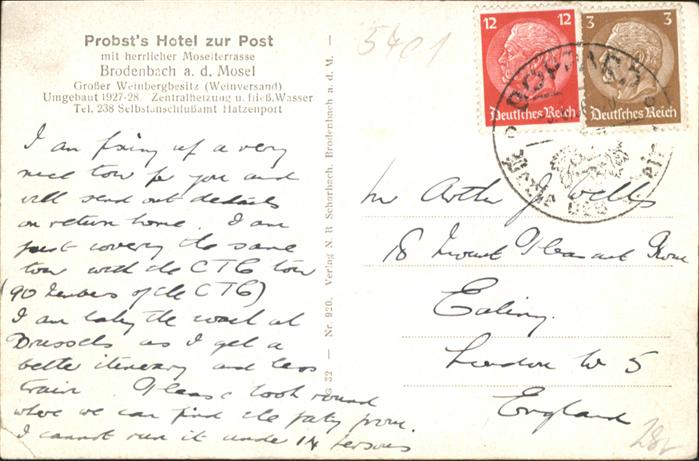 Probst's Hotel zur Post
mit herrlicher Moselterrasse
Brodenbach a. d. Mosel
Großer Weinbergbesitz (Weinversand)
Umgebaut 1927-28. Zentralheizung u. fließ. Wasser
Tel. 238 Selbstanschlußamt Hatzenport
I am fixing up a very
nice tour for you and
will send out details
on return home. I am
just covering the same
tour with the CTC tour
(90 members of the CTC)
I am taking the coach at
Brussels as I get a
better itinerary and less
train. Please look round
where we can find the party from.
I cannot run it under 14 persons
32 — Nr. 920. Verlag N. R. Scharbach, Brodenbach a. d. M. —
5401
12 12
Deutsches Reich
3 3
Deutsches Reich
BOPPARD
Mr Arthur J Wells
18 Mount Pleasant
Ealing.
London W 5
England